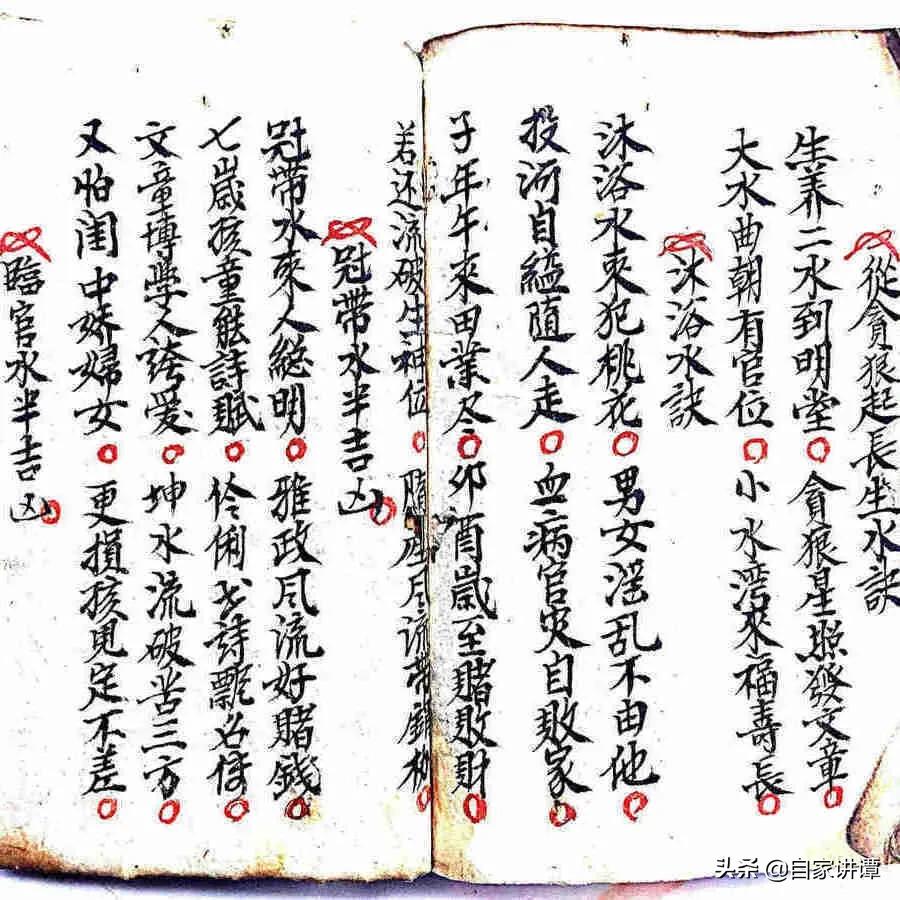 從貪狼起長生水訣
生养二水到明堂 貪狼星照發文章
大水曲朝有官位 小水湾來福壽長
沐浴水訣
沐浴水來犯桃花 男女淫乱不由他
投河自縊随人走 血病官災自敗家
子年午來田業尽 卯酉歲至賭敗財
若还流破生神位 堕 尽流带
冠帶水半吉凶
冠带水來人総明 雅政风流好賭錢
七歲孩童能詩賦 伶俐 詩飄名
文章博學人誇爱 坤水流破苦三方
又怕闺中娇婦女 更損孩兒定不差
臨官水半吉凶
头条 @自家讲谭